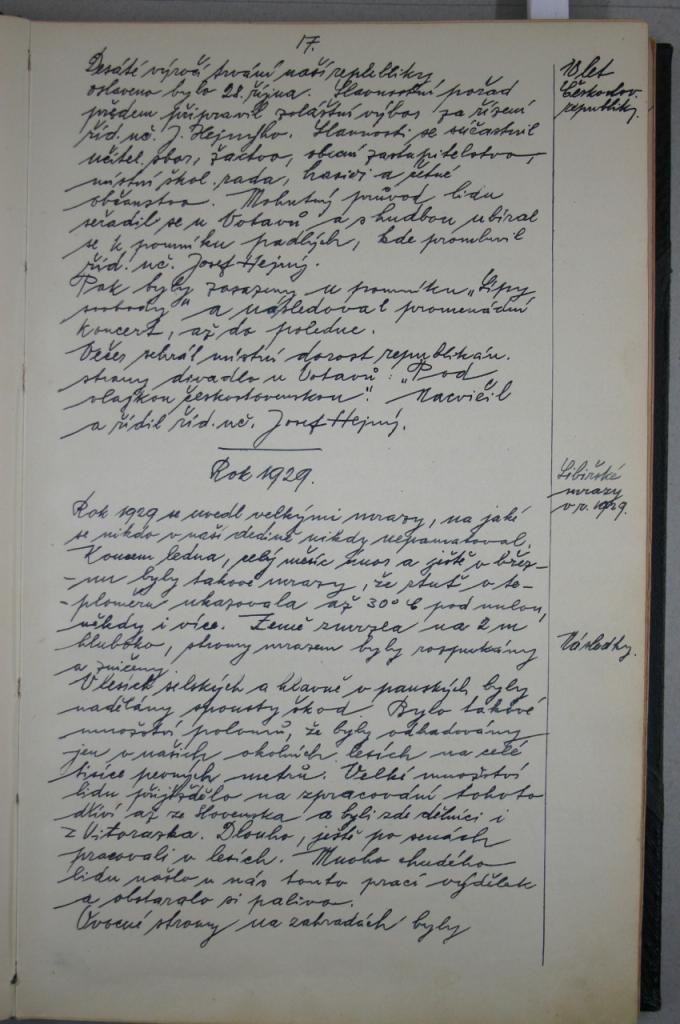 17.
Desáté výročí trvání naší republiky
oslaveno bylo 28. října. Slavnostní pořad
předem připravil zvláštní výbor za řízení
říd. uč. J. Hejného. Slavnosti se súčastnil
učitel. sbor, žactvo, obecní zastupitelstvo,
místní škol. rada, hasiči a četné
občanstvo. Mohutný průvod lidu
seřadil se u Votavů a s hudbou ubíral
se k pomníku padlých, kde promluvil
říd. uč. Josef Hejný.
Pak byly zasazeny u pomníku „Lípy
svobody" a následoval promenádní
koncert, až do poledne.
Večer sehrál místní dorost republikán.
strany divadlo u Votavů: „Pod
vlajkou československou". Nacvičil
a řídil říd. uč. Josef Hejný.
10 let
Českoslov.
republiky.
Rok 1929.
Rok 1929 se uvedl velkými mrazy, na jaké
se nikdo v naší dědině nikdy nepamatoval.
Koncem ledna, celý měsíc únor a ještě v břez-
-nu byly takové mrazy, že rtuť v te-
-ploměru ukazovala až 30° C pod nulou,
někdy i více. Země zmrzla na 2 m
hluboko, stromy mrazem byly rozpukány
a zničeny.
V lesích selských a hlavně v panských byly
nadělány spousty škod. Bylo takové
množství polomů, že byly odhadovány
jen v našich okolních lesích na celé
tisíce pevných metrů. Velké množství
lidu přijíždělo na zpracování tohoto
dříví až ze Slovenska a byli zde dělníci i
z Vitorazska. Dlouho, ještě po senách
pracovali v lesích. Mnoho chudého
lidu našlo u nás touto prací výdělek
a obstaralo si palivo.
Ovocné stromy na zahradách byly
Sibiřské
mrazy
v r. 1929.
Následky.